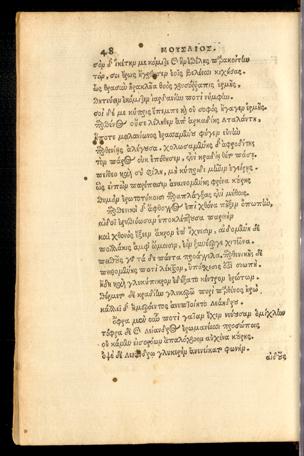 48 ΜΟΥΣΑΙΟΣ.
σὸν δ' ἱκέτην με κόμιζε καὶ ἢν ἐθέλῃς παρακοίτην
τόν, σοι ἔρως ἤγρευσεν ἑοῖς βελέεσσι κιχήσας.
ὡς θρασὺν ἡρακλῆα θοὸς χρυσόρραπις ἑρμῆς,
θητεύειν ἐκόμιζεν ἰαρδανίην ποτὶ νύμφην.
σοὶ δέ με κύπρις ἔπεμπε κỳ οὐ σοφὸς ἤγαγεν ἑρμῆς.
Παρθένος οὔσε λέληθεν ἀπ' ἀρκαδίης ἀταλάντη,
ἥ ποτε μειλανίωνος ἐρασσαμένου φύγεν εὐνὴν
Παρθενίης ἀλέγουσα. χολωσαμένης δ' ἀφροδίτης
τὸν πάρος οὐκ ἐπόθησεν, ἐνὶ κραδίῃ θέτο πάσῃ.
πείθεο καὶ σὺ φίλη, μὴ κύπριδι μῆνιν ἐγείρῃς.
ὣς εἰπὼν παρέπεισεν ἀναινομένης φρένα κούρης
θυμὸν ἐρωτοτόκοισι παραπλάγξας ἐνὶ μύθοις.
Παρθενικὴ δ' ἄφθογγος ἐπὶ χθόνα πῆξεν ὀπωπὴν,
αἰδοῖ ἐρευθιόωσαν ὑποκλέπτουσα παρειὴν
καὶ χθονὸς ἔξεεν ἄκρον ὑπ' ἴχνεσιν, αἰδομένη δὲ
πολλάκις ἀμφ' ὤμοισιν ἑὸν ξυνέεργε χιτῶνα.
πειθοῦς γὰρ τάδε πάντα προάγγελα. Παρθενικῆς δὲ
πειθομένης ποτὶ λέκτρον, ὑπόσχεσίς ἐστι σιωπή.
ἤδη καὶ γλυκύπικρον ἐδέξατο κέντρον ἐρώτων.
Θέρμετο δὲ κραδίην γλυκερῷ πυρὶ παρθένος ἡρώ
κάλλεϊ δ' ἱμερόεντος ἀνεπτοίητο λεάνδρου.
ὄφρα μὲν οὖν ποτὶ γαῖαν ἔχεν νεύουσαν ὀμίχλην
τόφρα δὲ καὶ Λείανδρος ἐρωμανέεσσι προσώποις
οὐ κάμεν εἰσορόων ἁπαλόχροον αὐχένα κούρης.
ὀψὲ δὲ λειάνδρῳ γλυκερὴν ἀνενείκατο φωνὴν.
αἰδοῦς